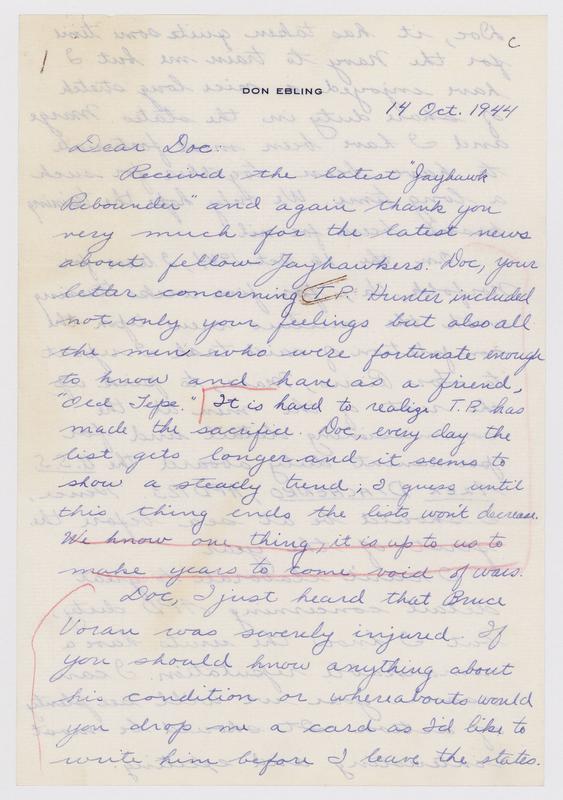 c
DON EBLING
14 Oct. 1944
Dear Doc:
Received the latest "Jayhawk
Rebounder" and again thank you
very much for the latest news
about fellow Jayhawkers. Doc, your
letter concerning T.P. Hunter included
not only your feelings but also all
the men who were fortunate enough
to know and have as a friend,
"Ole Tepe." It is hard to realize T.P. has
made the sacrifice. Doc, every day the
list gets longer and it seems to
show a steady trend; I guess until
this thing ends the lists won't decrease.
We know one thing, it is up to us to
make years to come void of wars.
Doc, I just heard that Bruce
Voran was severly injured. If
you should know anything about
his condition or whereabouts would
you drop me a card as I'd like to
write him before I leave the states.